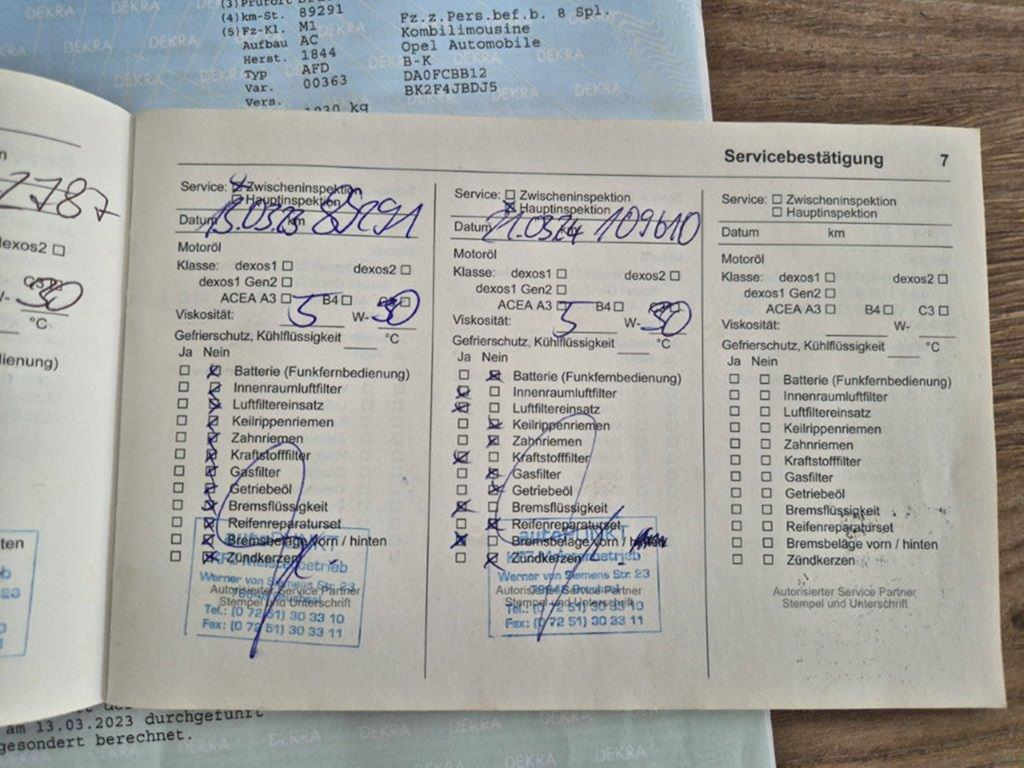 (4) km-St. 89291
(5) Fz-Kl. M1 Fz.z.Pers.bef.b. 8 Spl.
Aufbau AC Kombilimousine
Herst. 1844 Opel Automobile
Typ AFD B-K
Var. 00363 DA0FCBB12
Vers. BK2F4JBDJ5
1030 kg
DEKRA
Servicebestätigung 7
2787
dexos2
W- 30
°C
Service: Zwischeninspektion
Hauptinspektion
Datum 13.03.23 km 89291
Motoröl
Klasse: dexos1 dexos2
dexos1 Gen2
ACEA A3 B4
Viskosität: 5 W- 30
Gefrierschutz, Kühlflüssigkeit °C
Ja Nein
Batterie (Funkfernbedienung)
Innenraumluftfilter
Luftfiltereinsatz
Keilrippenriemen
Zahnriemen
Kraftstofffilter
Gasfilter
Getriebeöl
Bremsflüssigkeit
Reifenreparaturset
Bremsbeläge vorn / hinten
Zündkerzen
Werner von Siemens Str. 23
Autorisierter Service Partner
Stempel und Unterschrift
Tel.: (0 72 51) 30 33 10
Fax: (0 72 51) 30 33 11
Service: Zwischeninspektion
Hauptinspektion
Datum 21.03.24 109610
Motoröl
Klasse: dexos1 dexos2
dexos1 Gen2
ACEA A3 B4
Viskosität: 5 W- 30
Gefrierschutz, Kühlflüssigkeit °C
Ja Nein
Batterie (Funkfernbedienung)
Innenraumluftfilter
Luftfiltereinsatz
Keilrippenriemen
Zahnriemen
Kraftstofffilter
Gasfilter
Getriebeöl
Bremsflüssigkeit
Reifenreparaturset
Bremsbeläge vorn /
Zündkerzen
Werner von Siemens Str. 23
Autorisierter Service Partner
Stempel und Unterschrift
Tel.: (0 72 51) 30 33 10
Fax: (0 72 51) 30 33 11
Service: Zwischeninspektion
Hauptinspektion
Datum km
Motoröl
Klasse: dexos1 dexos2
dexos1 Gen2
ACEA A3 B4 C3
Viskosität: W-
Gefrierschutz, Kühlflüssigkeit °C
Ja Nein
Batterie (Funkfernbedienung)
Innenraumluftfilter
Luftfiltereinsatz
Keilrippenriemen
Zahnriemen
Kraftstofffilter
Gasfilter
Getriebeöl
Bremsflüssigkeit
Reifenreparaturset
Bremsbeläge vorn / hinten
Zündkerzen
Autorisierter Service Partner
Stempel und Unterschrift
am 13.03.2023 durchgeführt
gesondert berechnet.